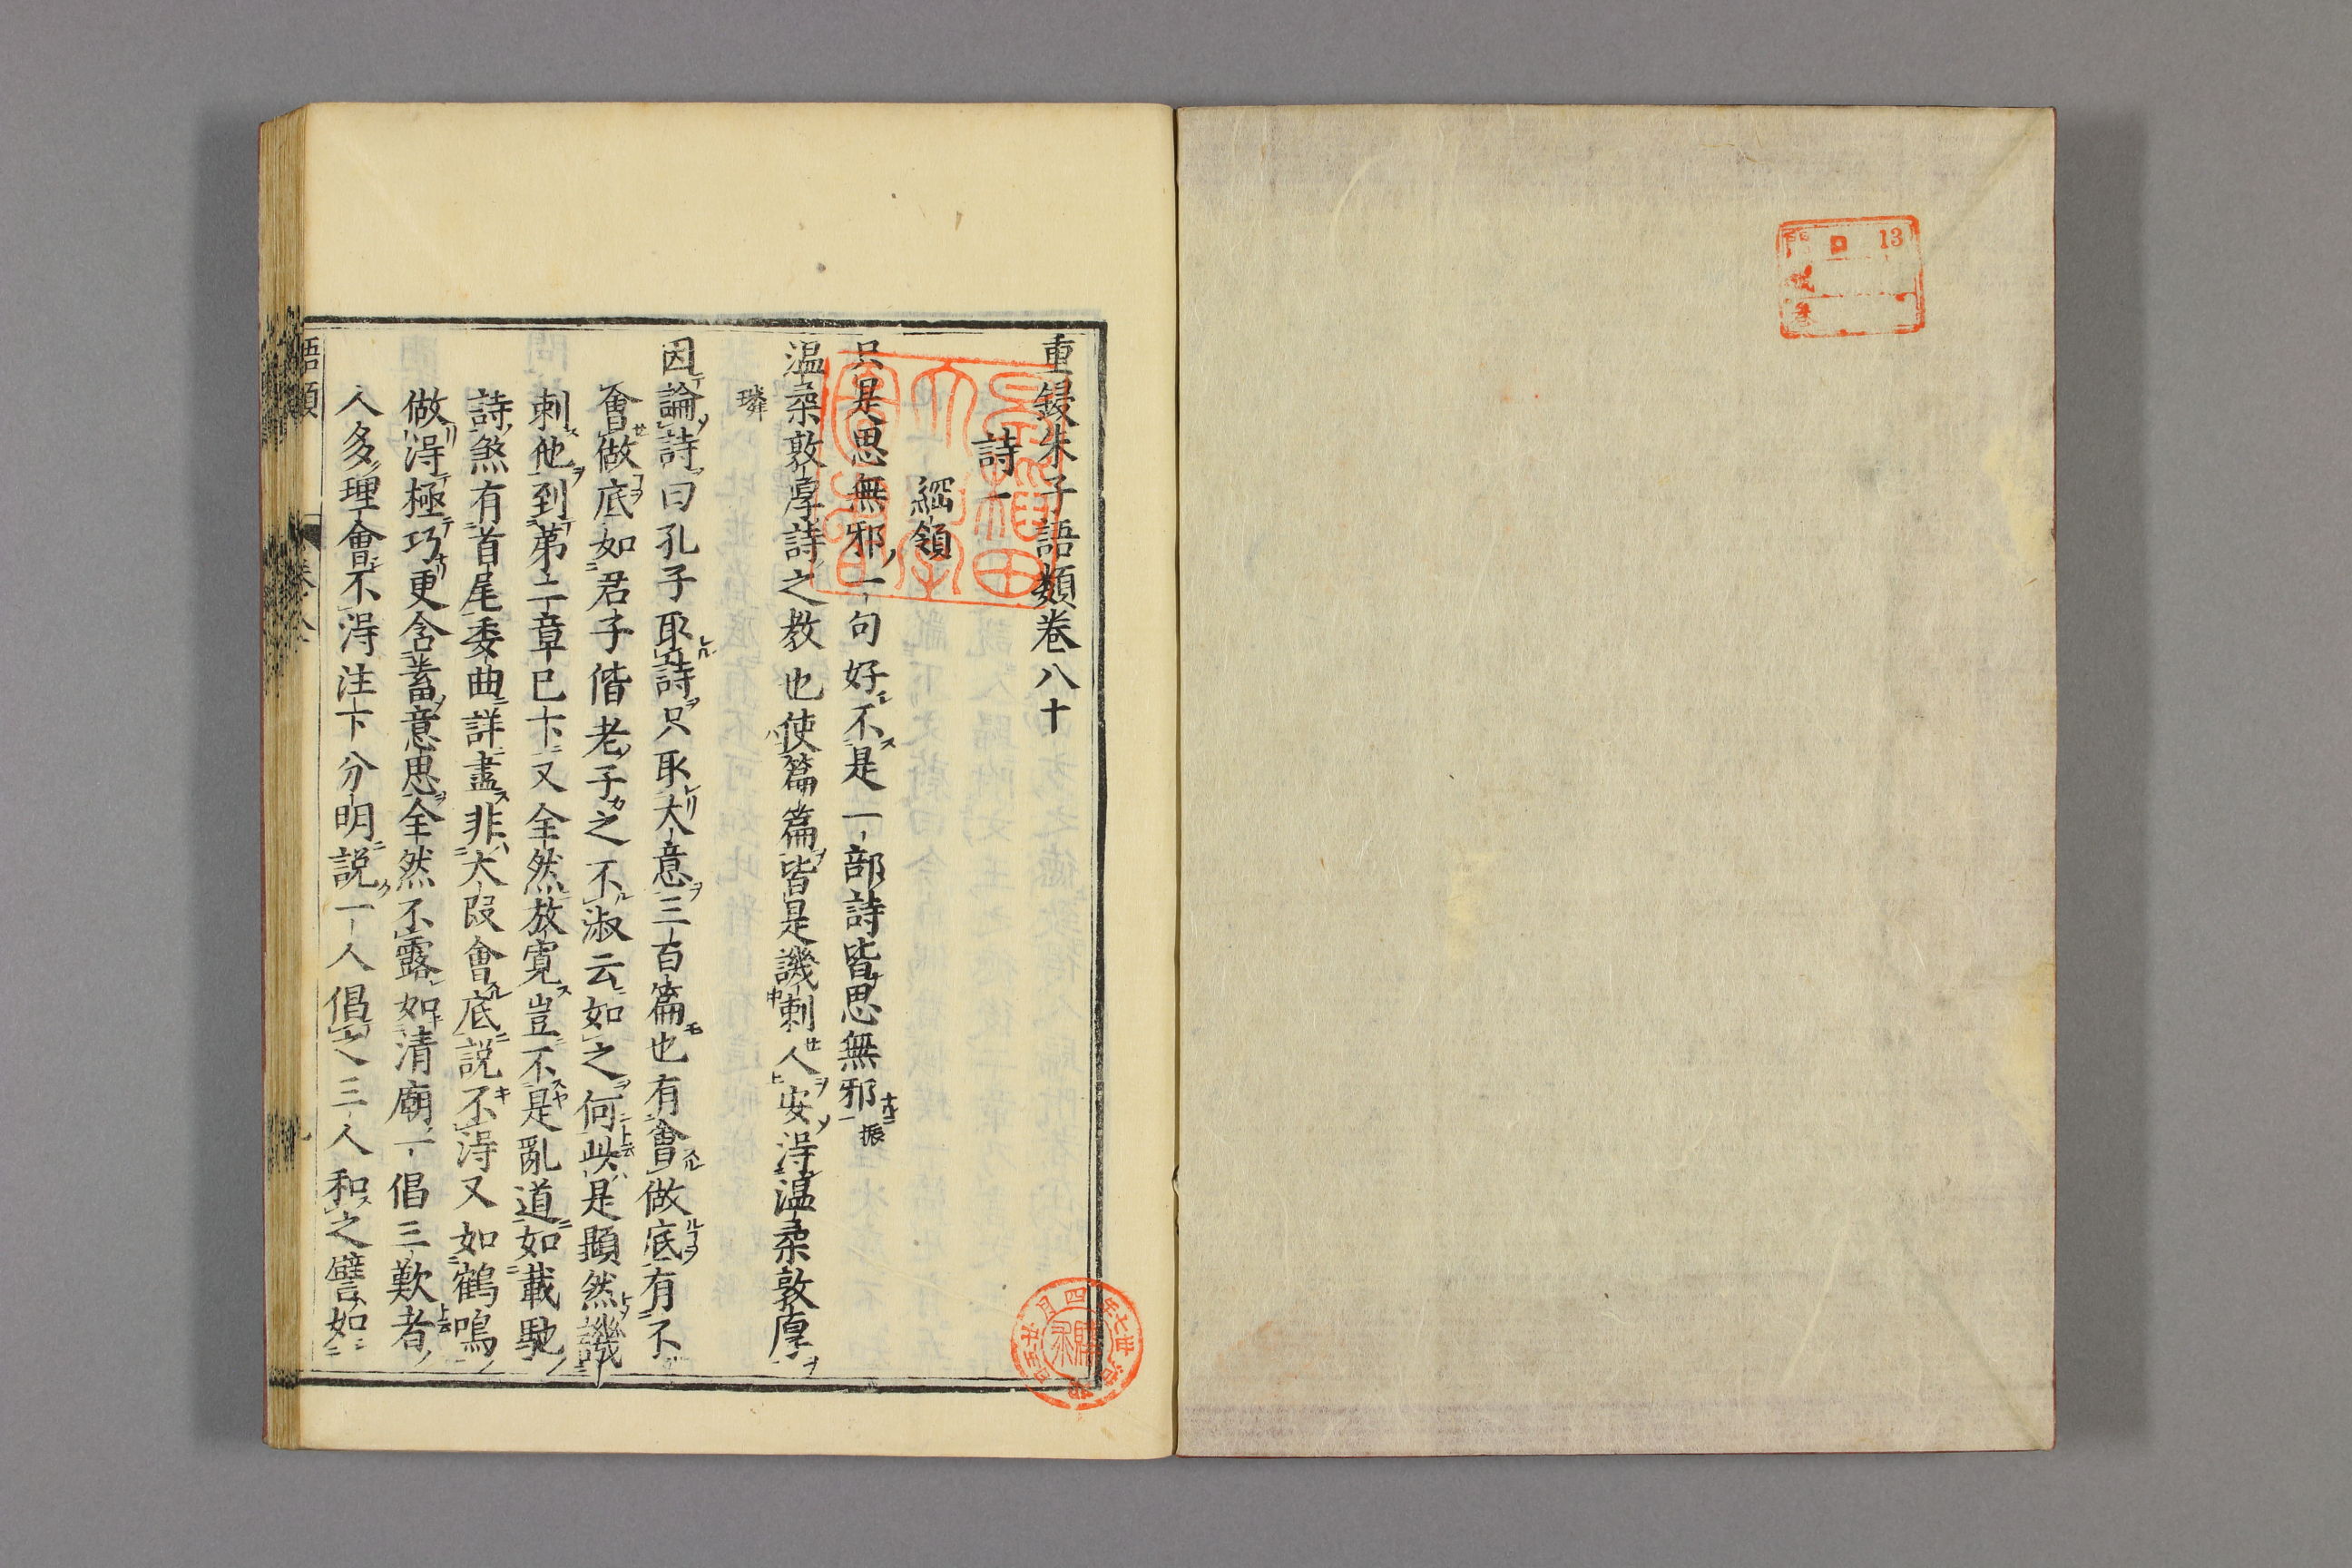 重鋟朱子語類卷八十
詩一
綱領
只是思無邪一句好不是一部詩皆思無邪振
溫柔敦厚詩之教也使篇篇皆是譏刺人安得溫柔敦厚
璘
因論詩曰孔子取詩只取大意三百篇也有會做底有不
會做底如君子偕老子之不淑云如之何此是顯然譏
刺他到第二章已下又全然放寬豈不是亂道如載馳
詩煞有首尾委曲詳盡非大段會底說不得又如鶴鳴
做得極巧更含蓄意思全然不露如清廟一倡三歎者
人多理會不得注下分明說一人倡之三人和之譬如
語類
卷八十
早稻田大學圖書
門 13
號
卷